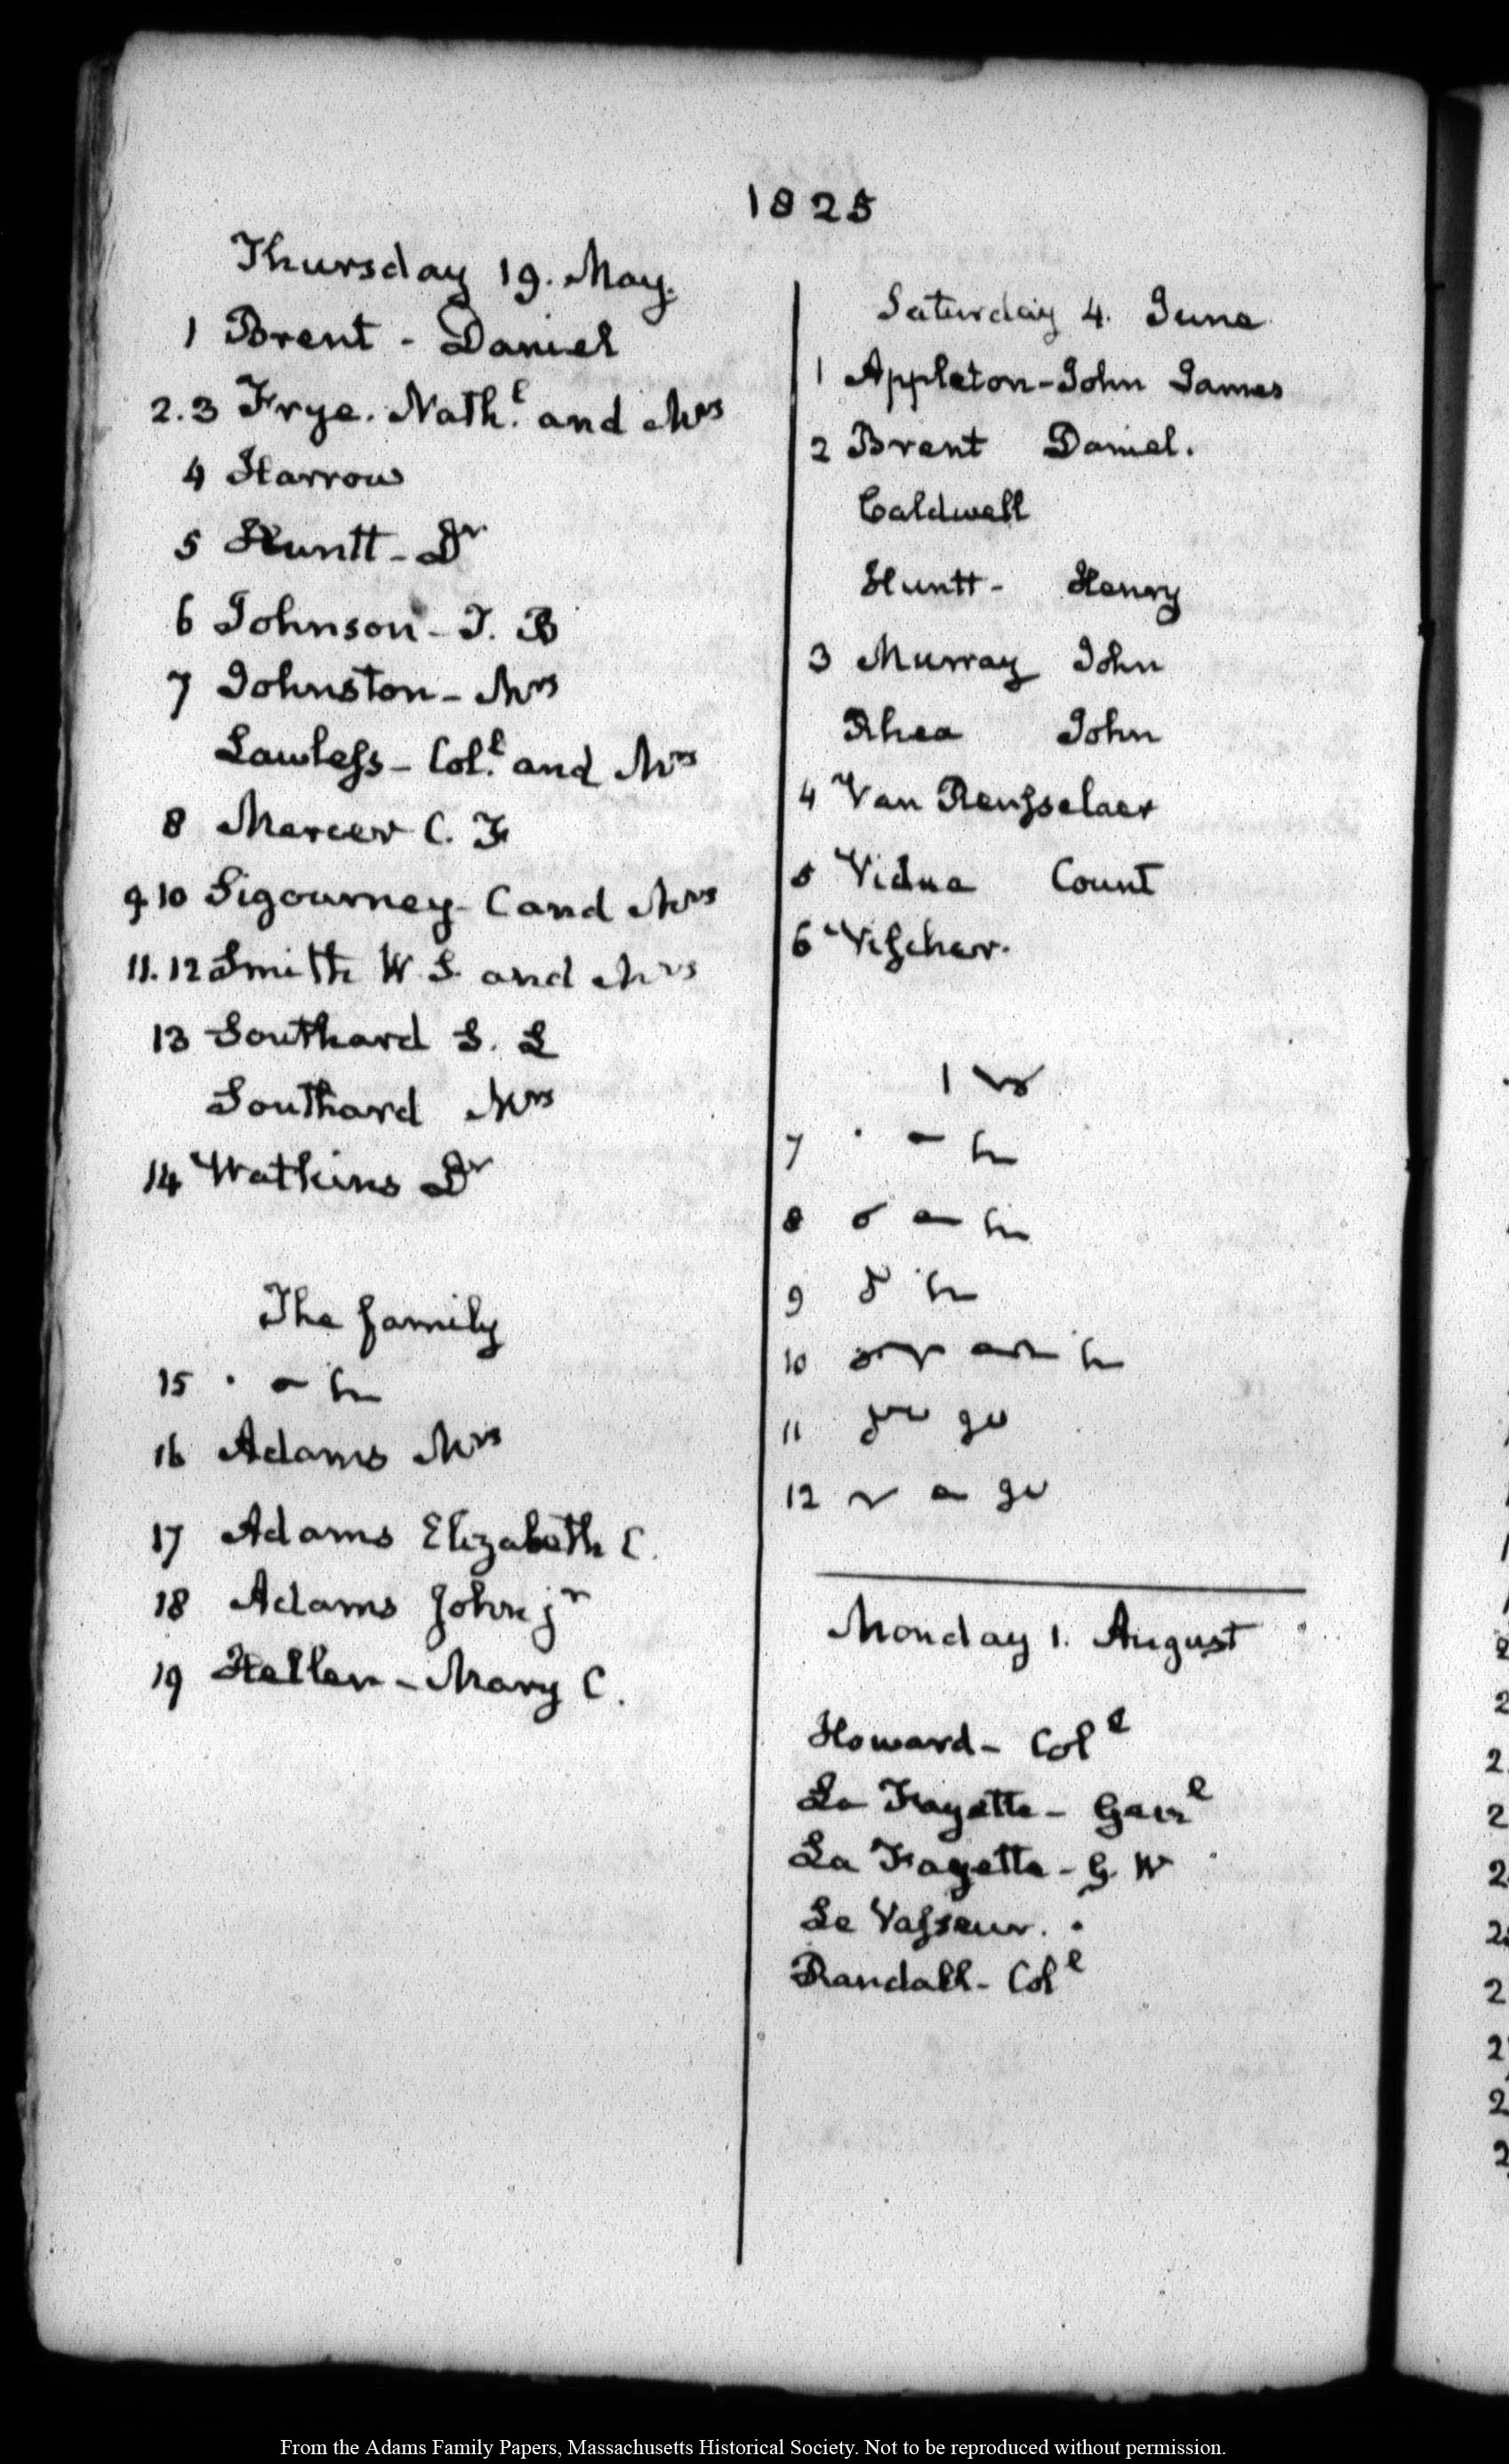 1825
Thursday 19. May.
1 Brent - Daniel
2.3 Frye. Nath.l and Mrs
4 Harrow
5 Huntt - Dr
6 Johnson - T. B
7 Johnston - Mrs
Lawless - Col.l and Mrs
8 Mercer C. F
9.10 Sigourney - C and Mrs
11.12 Smith W. S. and Mrs
13 Southard S. L
Southard Mrs
14 Watkins Dr
The family
15
16 Adams Mrs
17 Adams Elizabeth C.
18 Adams John jr
19 Hellen - Mary C.
Saturday 4. June
1 Appleton - John James
2 Brent Daniel.
Caldwell
Huntt - Henry
3 Murray John
Rhea John
4 Van Rensselaer
5 Vidua Count
6 Visscher.
7
8
9
10
11
12
Monday 1. August
Howard - Col l
La Fayette - Gen l
La Fayette - G. W
Le Vasseur.
Randall - Col l
From the Adams Family Papers, Massachusetts Historical Society. Not to be reproduced without permission.